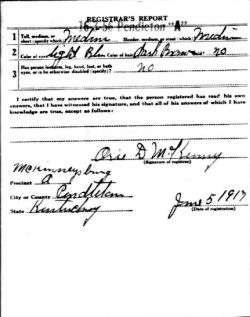 REGISTRAR'S REPORT
16-2-56 Pendleton "A"
1 Tall, medium, or short (specify which) Medium Slender, medium, or stout (which) Medium
2 Color of eyes Light Blue Color of hair Dark Brown Bald No
3 Has person lost arm, leg, hand, foot, or both eyes, or is he otherwise disabled (specify)? No
I certify that my answers are true, that the person registered has read his own answers, that I have witnessed his signature, and that all of his answers of which I have knowledge are true, except as follows:
Orie D McKenny
(Signature of registrar)
McKinneysburg
Precinct A
City or County Pendleton
State Kentucky
June 5 1917
(Date of registration)